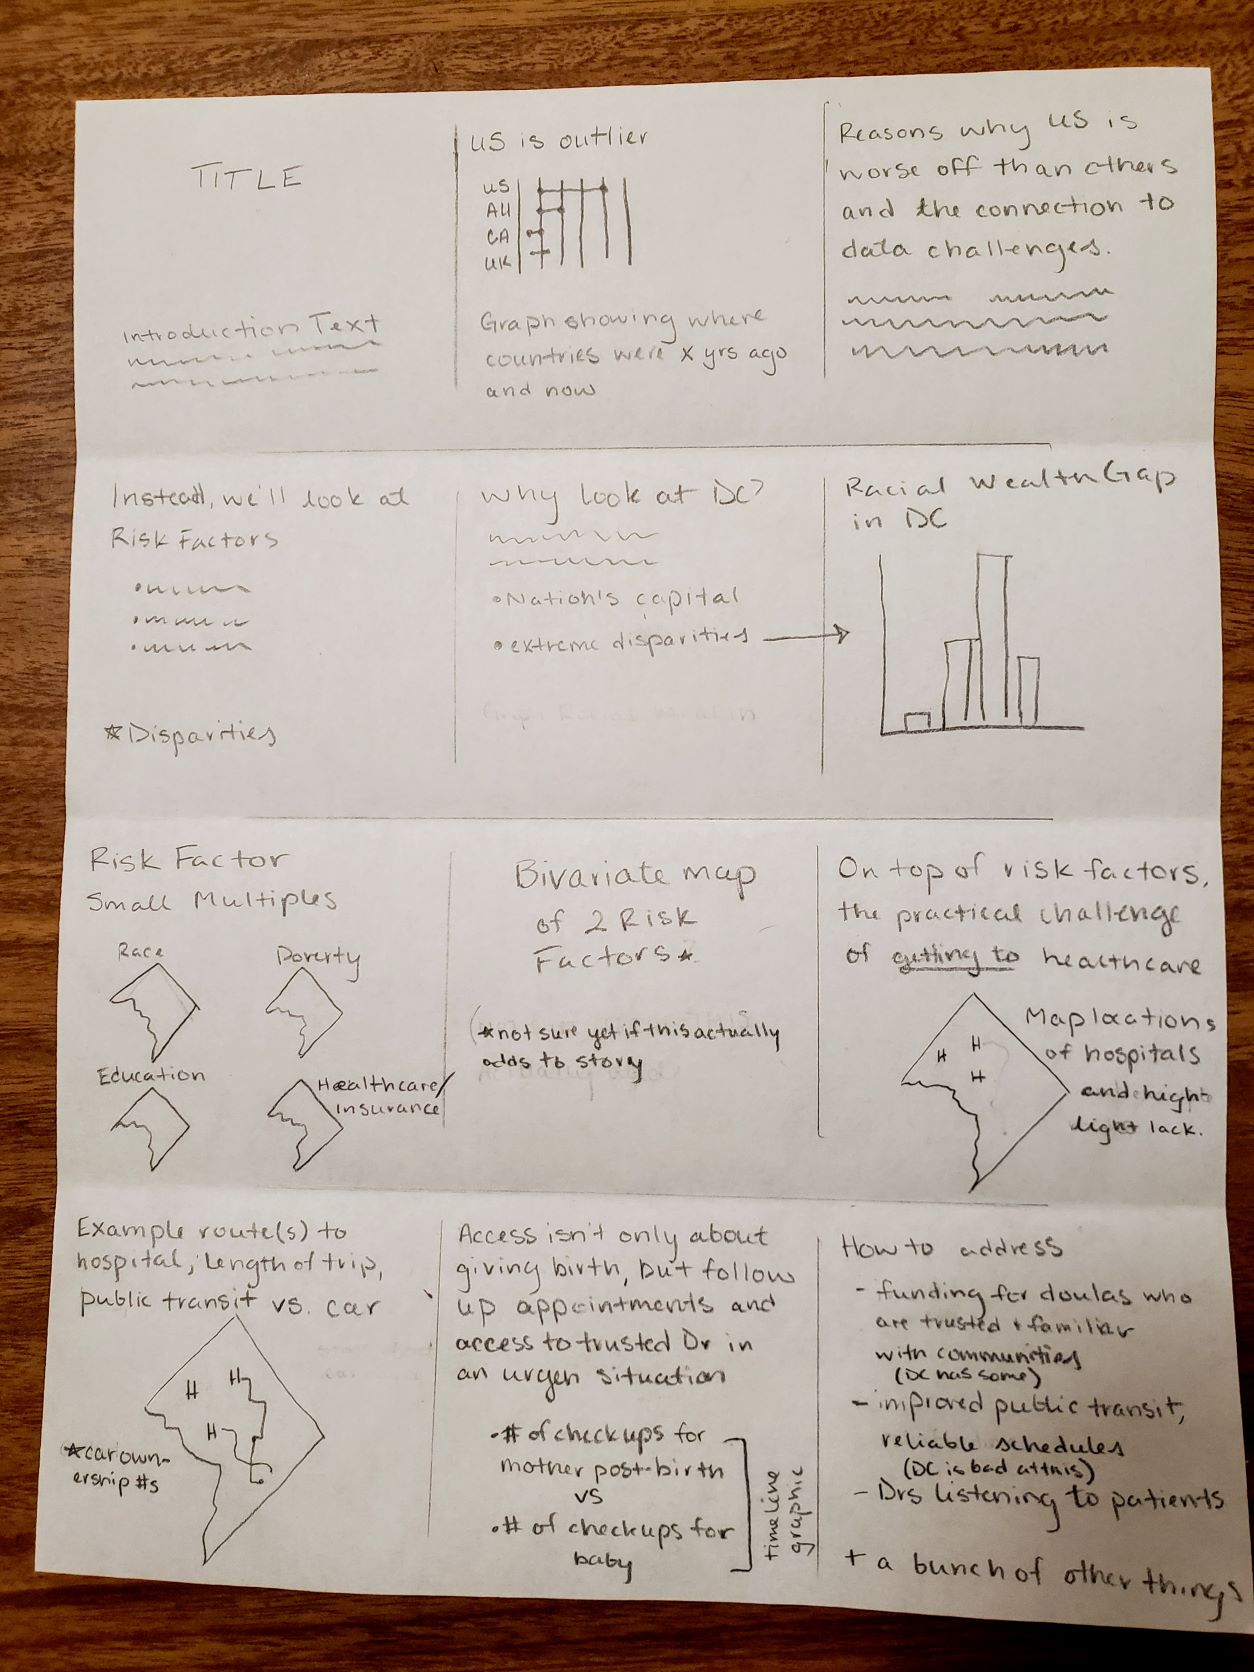 TITLE
Introduction Text
US is outlier
US
AU
CA
UK
Graph showing where
countries were x yrs ago
and now
Reasons why US is
worse off than others
and the connection to
data challenges.
Instead, we'll look at
Risk Factors
*Disparities
Why look at DC?
•Nation's capital
•extreme disparities
Racial Wealth Gap
in DC
Risk Factor
Small Multiples
Race
Poverty
Education
Healthcare/
insurance
Bivariate map
of 2 Risk
Factors*
(*not sure yet if this actually
adds to story
On top of risk factors,
the practical challenge
of getting to healthcare
H
H
H
Map locations
of hospitals
and high-
light lack.
Example route(s) to
hospital, length of trip,
public transit vs. car
H
H
H
*car own-
ership #s
Access isn't only about
giving birth, but follow
up appointments and
access to trusted Dr in
an urgen situation
•# of checkups for
mother post-birth
vs
•# of checkups for
baby
timeline
graphic
How to address
- funding for doulas who
are trusted + familiar
with communities
(DC has some)
- improved public transit,
reliable schedules
(DC is bad at this)
- Drs listening to patients
+ a bunch of other things